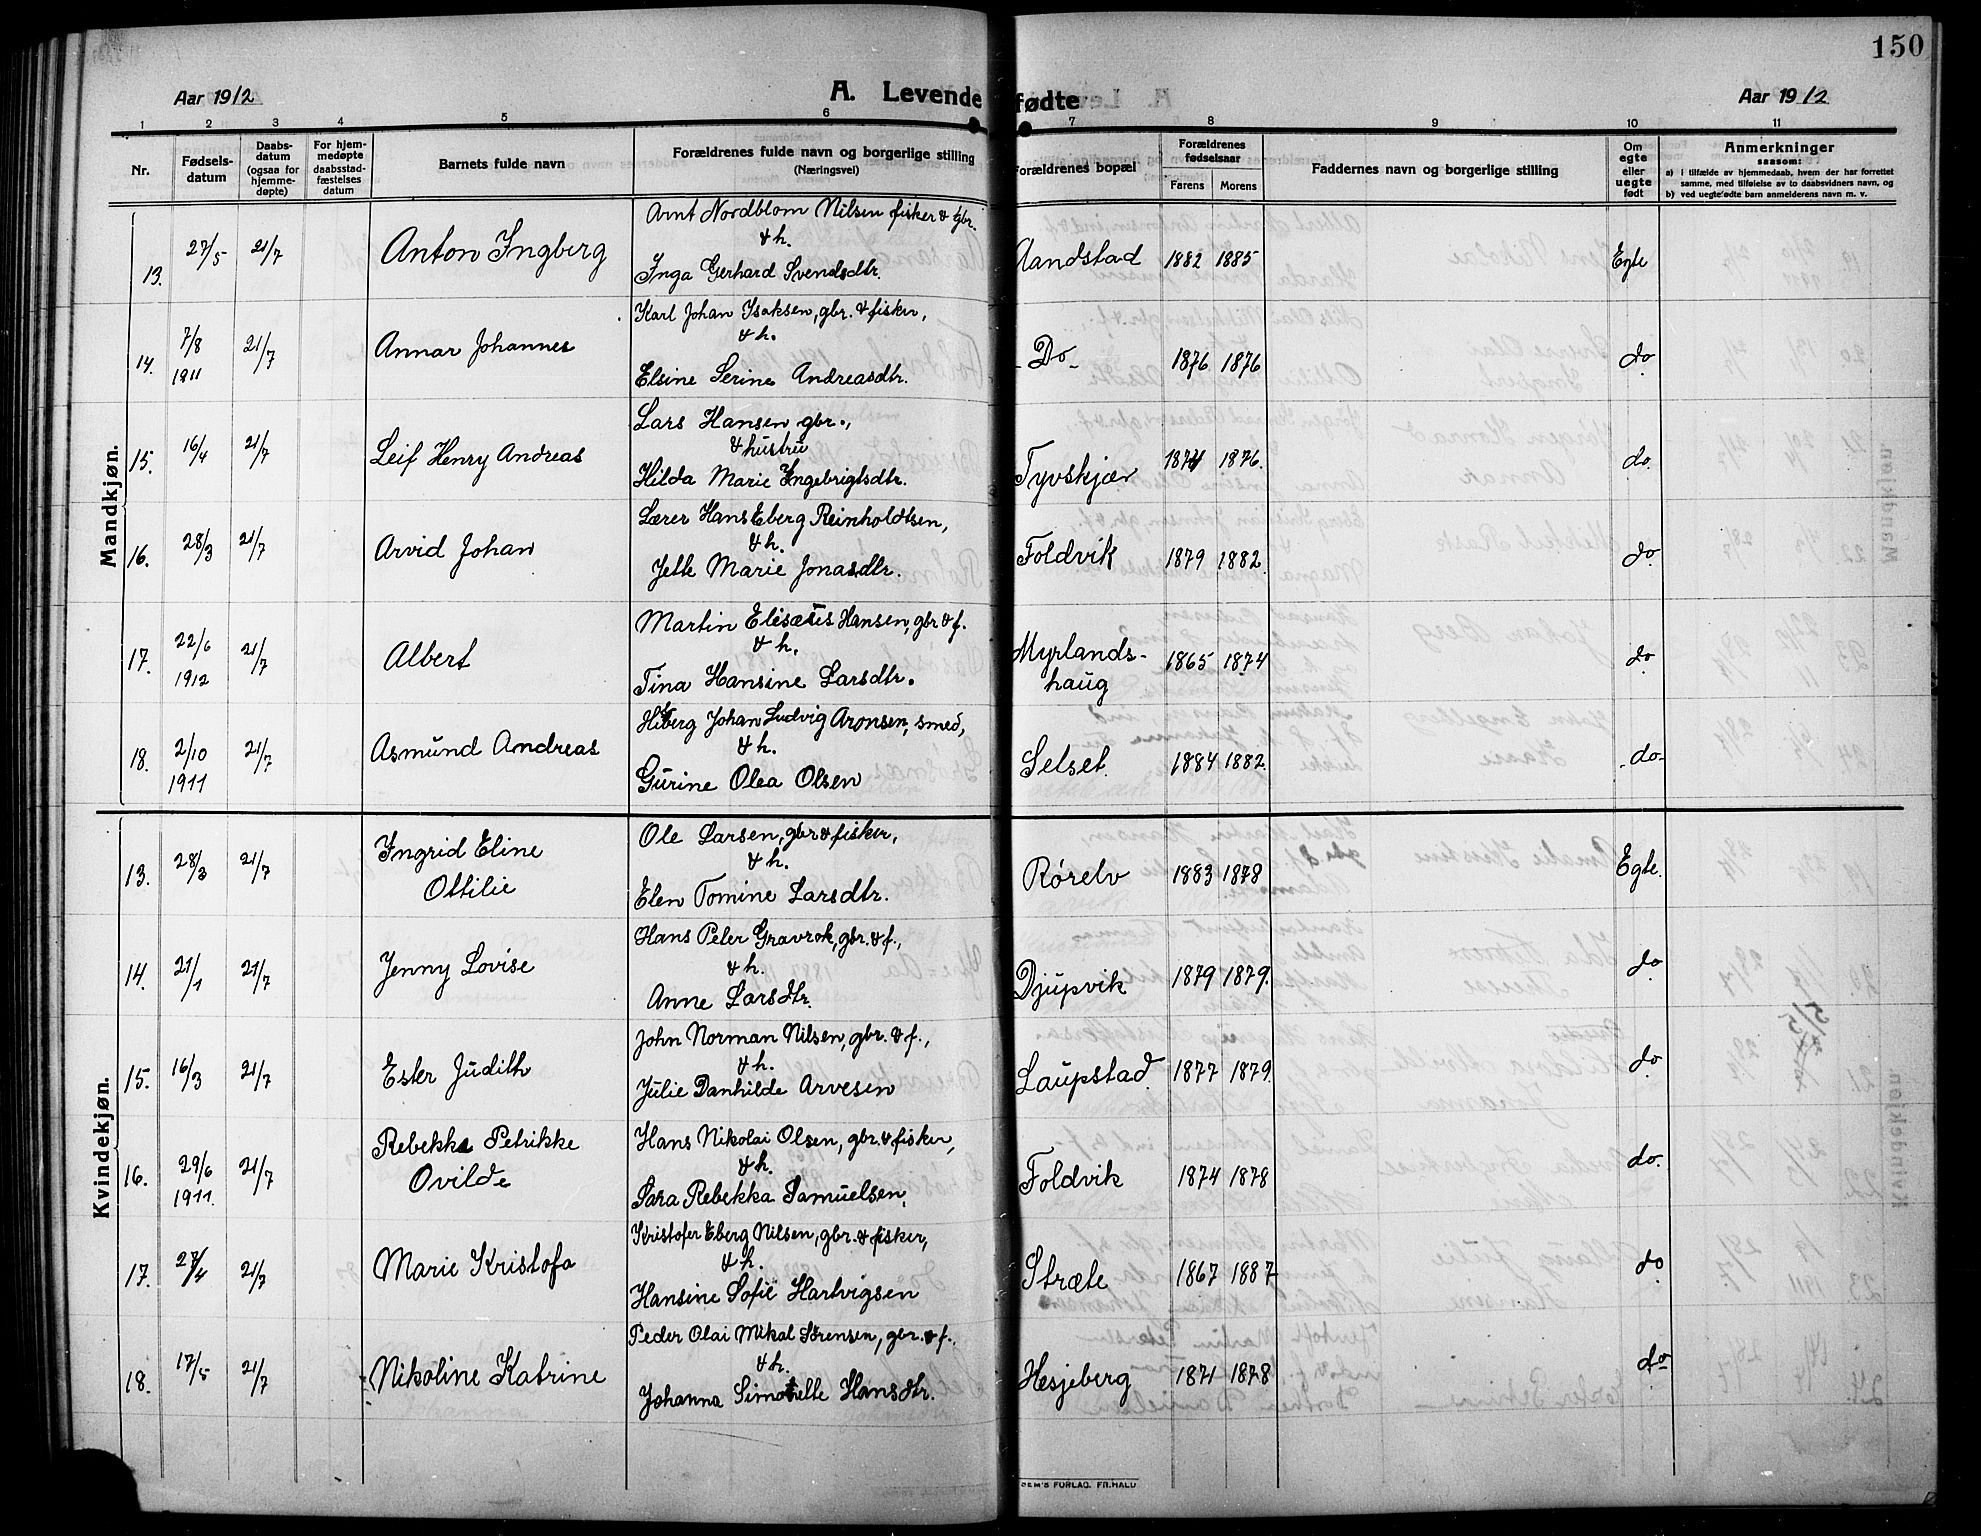 150
Aar 1912
A. Levende fødte
Aar 1912
1 2 3 4 5 6 7 8 9 10 11
Nr.
Fødsels-
datum
Daabs-
datum
(ogsaa for
hjemme-
døpte)
For hjem-
medøpte
daabsstad-
fæstelses
datum
Barnets fulde navn
Forældrenes fulde navn og borgerlige stilling
(Næringsvei)
Forældrenes bopæl
Forældrenes
fødselsaar
Farens Morens
Faddernes navn og borgerlige stilling
Om
egte
eller
uegte
født
Anmerkninger
saasom:
a) i tilfælde av hjemmedaab, hvem der har forrettet
samme, med tilføielse av to daabsvidners navn, og
b) ved uegte fødte barn anmelderens navn m. v.
Mandkjøn.
Arnt Nordblom Nilsen fisker & gbr.
& h.
13. 27/5 21/7 Anton Ingberg Aandstad 1882 1885 Egte
Inga Gerhard Svendsdtr.
Karl Johan Isaksen, gbr. & fisker,
& h.
14. 7/8 1911 21/7 Annar Johannes - Do - 1876 1876 do
Elsine Serine Andreasdtr.
Lars Hansen gbr.,
& hustru
15. 16/4 21/7 Leif Henry Andreas Tyvskjær 1874 1876. do.
Hilda Marie Ingebrigtsdtr.
Lærer Hans Eberg Reinholdtsen,
& h.
16. 28/3 21/7 Arvid Johan Foldvik 1879 1882. do.
Jette Marie Jonasdtr.
Martin Elisæus Hansen, gbr & f.
& h.
17. 22/6 1912 21/7 Albert Myrlands-
haug 1865 1874 do
Tina Hansine Larsdtr.
Johan Ludvig Aronsen, smed,
& h.
18. 2/10 1911 21/7 Asmund Andreas Selset. 1884 1882. - do -
Gurine Olea Olsen
Kvindekjøn.
Ole Larsen, gbr & fisker,
& h.
13. 28/3 21/7 Ingrid Eline
Ottilie Rørelv 1883 1878 Egte.
Elen Tomine Larsdtr.
Hans Peter Gravrok, gbr. & f.,
& h.
14. 21/1 21/7 Jenny Lovise Djupvik 1879 1879. do
Anne Larsdtr.
John Norman Nilsen, gbr. & f.,
& h.
15. 16/3 21/7 Ester Judith Laupstad. 1877 1879. do
Julie Danhilde Arvesen
Hans Nikolai Olsen, gbr. & fisker,
& h.
16. 29/6 1911. 21/7 Rebekka Petrikke
Ovilde Foldvik 1874 1878 do.
Sara Rebekka Samuelsen,
Kristofer Eberg Nilsen, gbr. & fisker,
& h.
17. 27/4 21/7 Marie Kristofa Stræte 1867 1887 do
Hansine Sofie Hartvigsen
Peder Olai Mikal Sørensen, gbr. & f.
& h.
18. 17/5 21/7 Nikoline Katrine Hesjeberg 1871 1878 do
Johanna Simonette Hansdtr.
FORLAG. FR. HALD